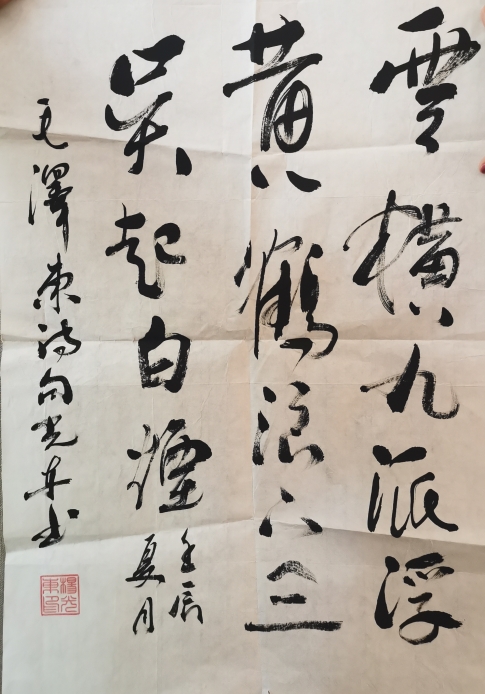 雲橫九派浮
黃鶴浪下三
吳起白煙
壬辰
夏月
毛澤東詩句光东书